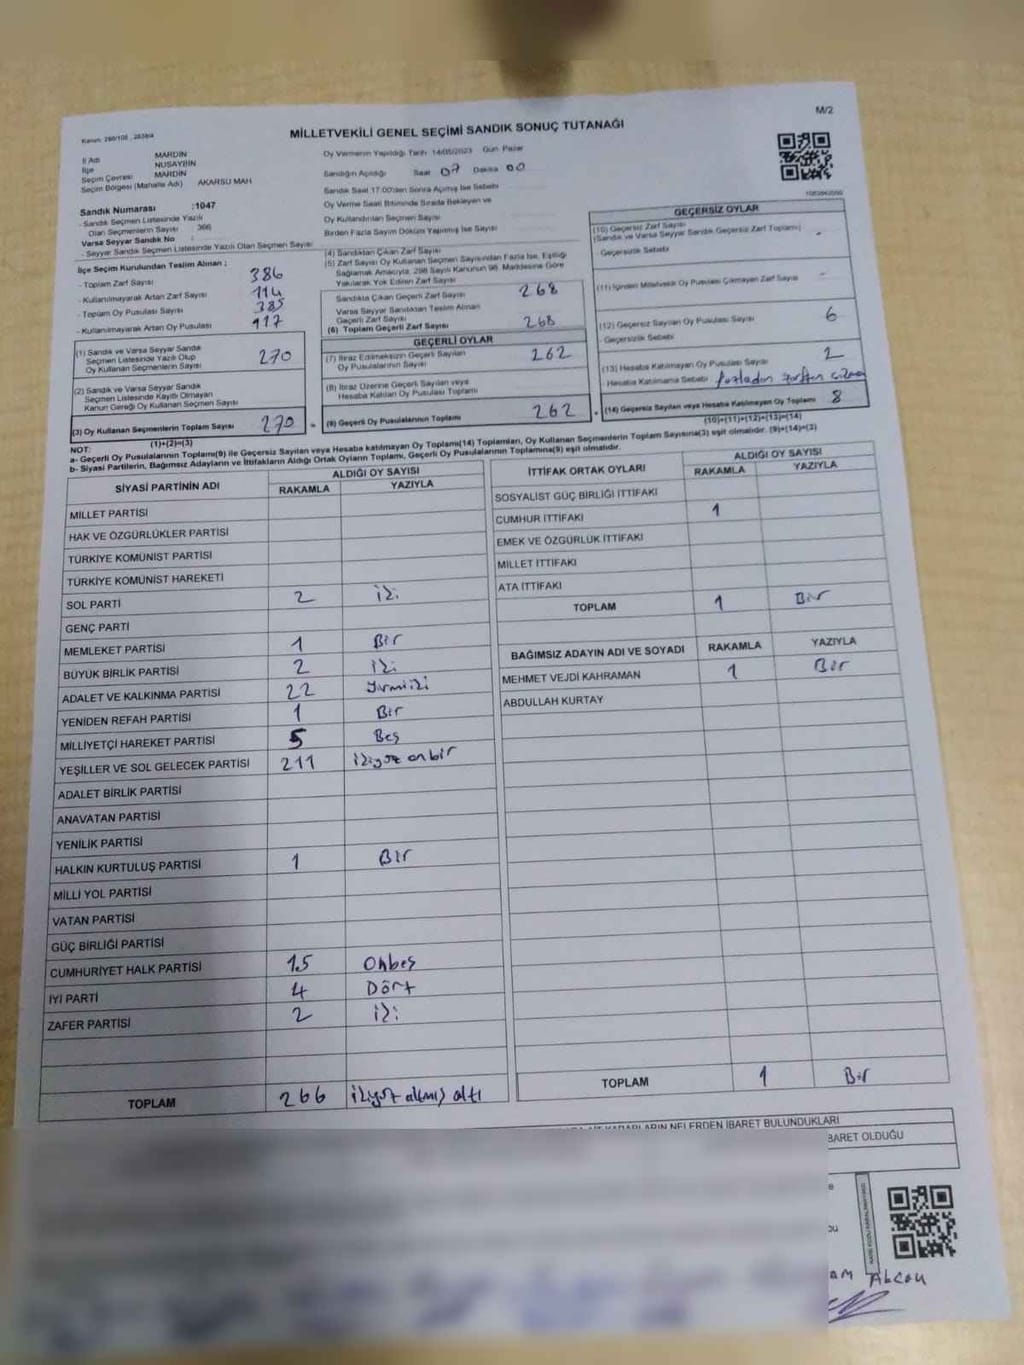 M/2
Kanun: 298/105 , 2839/4
MİLLETVEKİLİ GENEL SEÇİMİ SANDIK SONUÇ TUTANAĞI
İl Adı MARDİN
İlçe NUSAYBİN
Seçim Çevresi MARDİN
Seçim Bölgesi (Mahalle Adı) AKARSU MAH
Sandık Numarası :1047
- Sandık Seçmen Listesinde Yazılı
Olan Seçmenlerin Sayısı : 366
Varsa Seyyar Sandık No :
- Seyyar Sandık Listesinde Yazılı Olan Seçmen Sayısı
Oy Vermenin Yapıldığı Tarih 14/05/2023 Gün Pazar
Sandığın Açıldığı Saat 07 Dakika 00
Sandık Saat 17.00'den Sonra Açılmış İse Sebebi
Oy Verme Saati Bitiminde Sırada Bekleyen ve
Oy Kullandırılan Seçmen Sayısı
Birden Fazla Sayım Döküm Yapılmış İse Sayısı
İlçe Seçim Kurulundan Teslim Alınan ;
- Toplam Zarf Sayısı 386
- Kullanılmayarak Artan Zarf Sayısı 114
- Toplam Oy Pusulası Sayısı 385
- Kullanılmayarak Artan Oy Pusulası 117
(1) Sandık ve Varsa Seyyar Sandık
Seçmen Listesinde Yazılı Olup
Oy Kullanan Seçmenlerin Sayısı 270
(2) Sandık ve Varsa Seyyar Sandık
Seçmen Listesinde Kayıtlı Olmayan
Kanun Gereği Oy Kullanan Seçmen Sayısı
(3) Oy Kullanan Seçmenlerin Toplam Sayısı 270
(1)+(2)=(3)
(4) Sandıktan Çıkan Zarf Sayısı
(5) Zarf Sayısı Oy Kullanan Seçmen Sayısından Fazla İse, Eşitliği
Sağlamak Amacıyla, 298 Sayılı Kanunun 98. Maddesine Göre
Yakılarak Yok Edilen Zarf Sayısı
Sandıkta Çıkan Geçerli Zarf Sayısı 268
Varsa Seyyar Sandıktan Teslim Alınan
Geçerli Zarf Sayısı
(6) Toplam Geçerli Zarf Sayısı 268
GEÇERLİ OYLAR
(7) İtiraz Edilmeksizin Geçerli Sayılan
Oy Pusulalarının Sayısı 262
(8) İtiraz Üzerine Geçerli Sayılan veya
Hesaba Katılan Oy Pusulası Toplamı
(9) Geçerli Oy Pusulalarının Toplamı 262
GEÇERSİZ OYLAR
(10) Geçersiz Zarf Sayısı
(Sandık ve Varsa Seyyar Sandık Geçersiz Zarf Toplamı) -
Geçersizlik Sebebi
(11) İçinden Milletvekili Oy Pusulası Çıkmayan Zarf Sayısı -
(12) Geçersiz Sayılan Oy Pusulası Sayısı 6
Geçersizlik Sebebi
(13) Hesaba Katılmayan Oy Pusulası Sayısı 2
Hesaba Katılmama Sebebi
(14) Geçersiz Sayılan veya Hesaba Katılmayan Oy Toplamı 8
(10)+(11)+(12)+(13)=(14)
NOT:
a- Geçerli Oy Pusulalarının Toplamı(9) ile Geçersiz Sayılan veya Hesaba katılmayan Oy Toplamı(14) Toplamları, Oy Kullanan Seçmenlerin Toplam Sayısına(3) eşit olmalıdır. (9)+(14)=(3)
b- Siyasi Partilerin, Bağımsız Adayların ve İttifakların Aldığı Ortak Oyların Toplamı, Geçerli Oy Pusulalarının Toplamına(9) eşit olmalıdır.
SİYASİ PARTİNİN ADI ALDIĞI OY SAYISI
RAKAMLA YAZIYLA
MİLLET PARTİSİ
HAK VE ÖZGÜRLÜKLER PARTİSİ
TÜRKİYE KOMÜNİST PARTİSİ
TÜRKİYE KOMÜNİST HAREKETİ
SOL PARTİ 2 iki
GENÇ PARTİ
MEMLEKET PARTİSİ 1 Bir
BÜYÜK BİRLİK PARTİSİ 2 iki
ADALET VE KALKINMA PARTİSİ 22 yirmiiki
YENİDEN REFAH PARTİSİ 1 Bir
MİLLİYETÇİ HAREKET PARTİSİ 5 Beş
YEŞİLLER VE SOL GELECEK PARTİSİ 211 ikiyüz onbir
ADALET BİRLİK PARTİSİ
ANAVATAN PARTİSİ
YENİLİK PARTİSİ
HALKIN KURTULUŞ PARTİSİ 1 Bir
MİLLİ YOL PARTİSİ
VATAN PARTİSİ
GÜÇ BİRLİĞİ PARTİSİ
CUMHURİYET HALK PARTİSİ 15 Onbeş
İYİ PARTİ 4 Dört
ZAFER PARTİSİ 2 iki
TOPLAM 266 ikiyüz altmış altı
İTTİFAK ORTAK OYLARI ALDIĞI OY SAYISI
RAKAMLA YAZIYLA
SOSYALİST GÜÇ BİRLİĞİ İTTİFAKI
CUMHUR İTTİFAKI 1
EMEK VE ÖZGÜRLÜK İTTİFAKI
MİLLET İTTİFAKI
ATA İTTİFAKI
TOPLAM 1 Bir
BAĞIMSIZ ADAYIN ADI VE SOYADI RAKAMLA YAZIYLA
MEHMET VEJDİ KAHRAMAN 1 Bir
ABDULLAH KURTAY
TOPLAM 1 Bir
NELERDEN İBARET BULUNDUKLARI
İBARET OLDUĞU